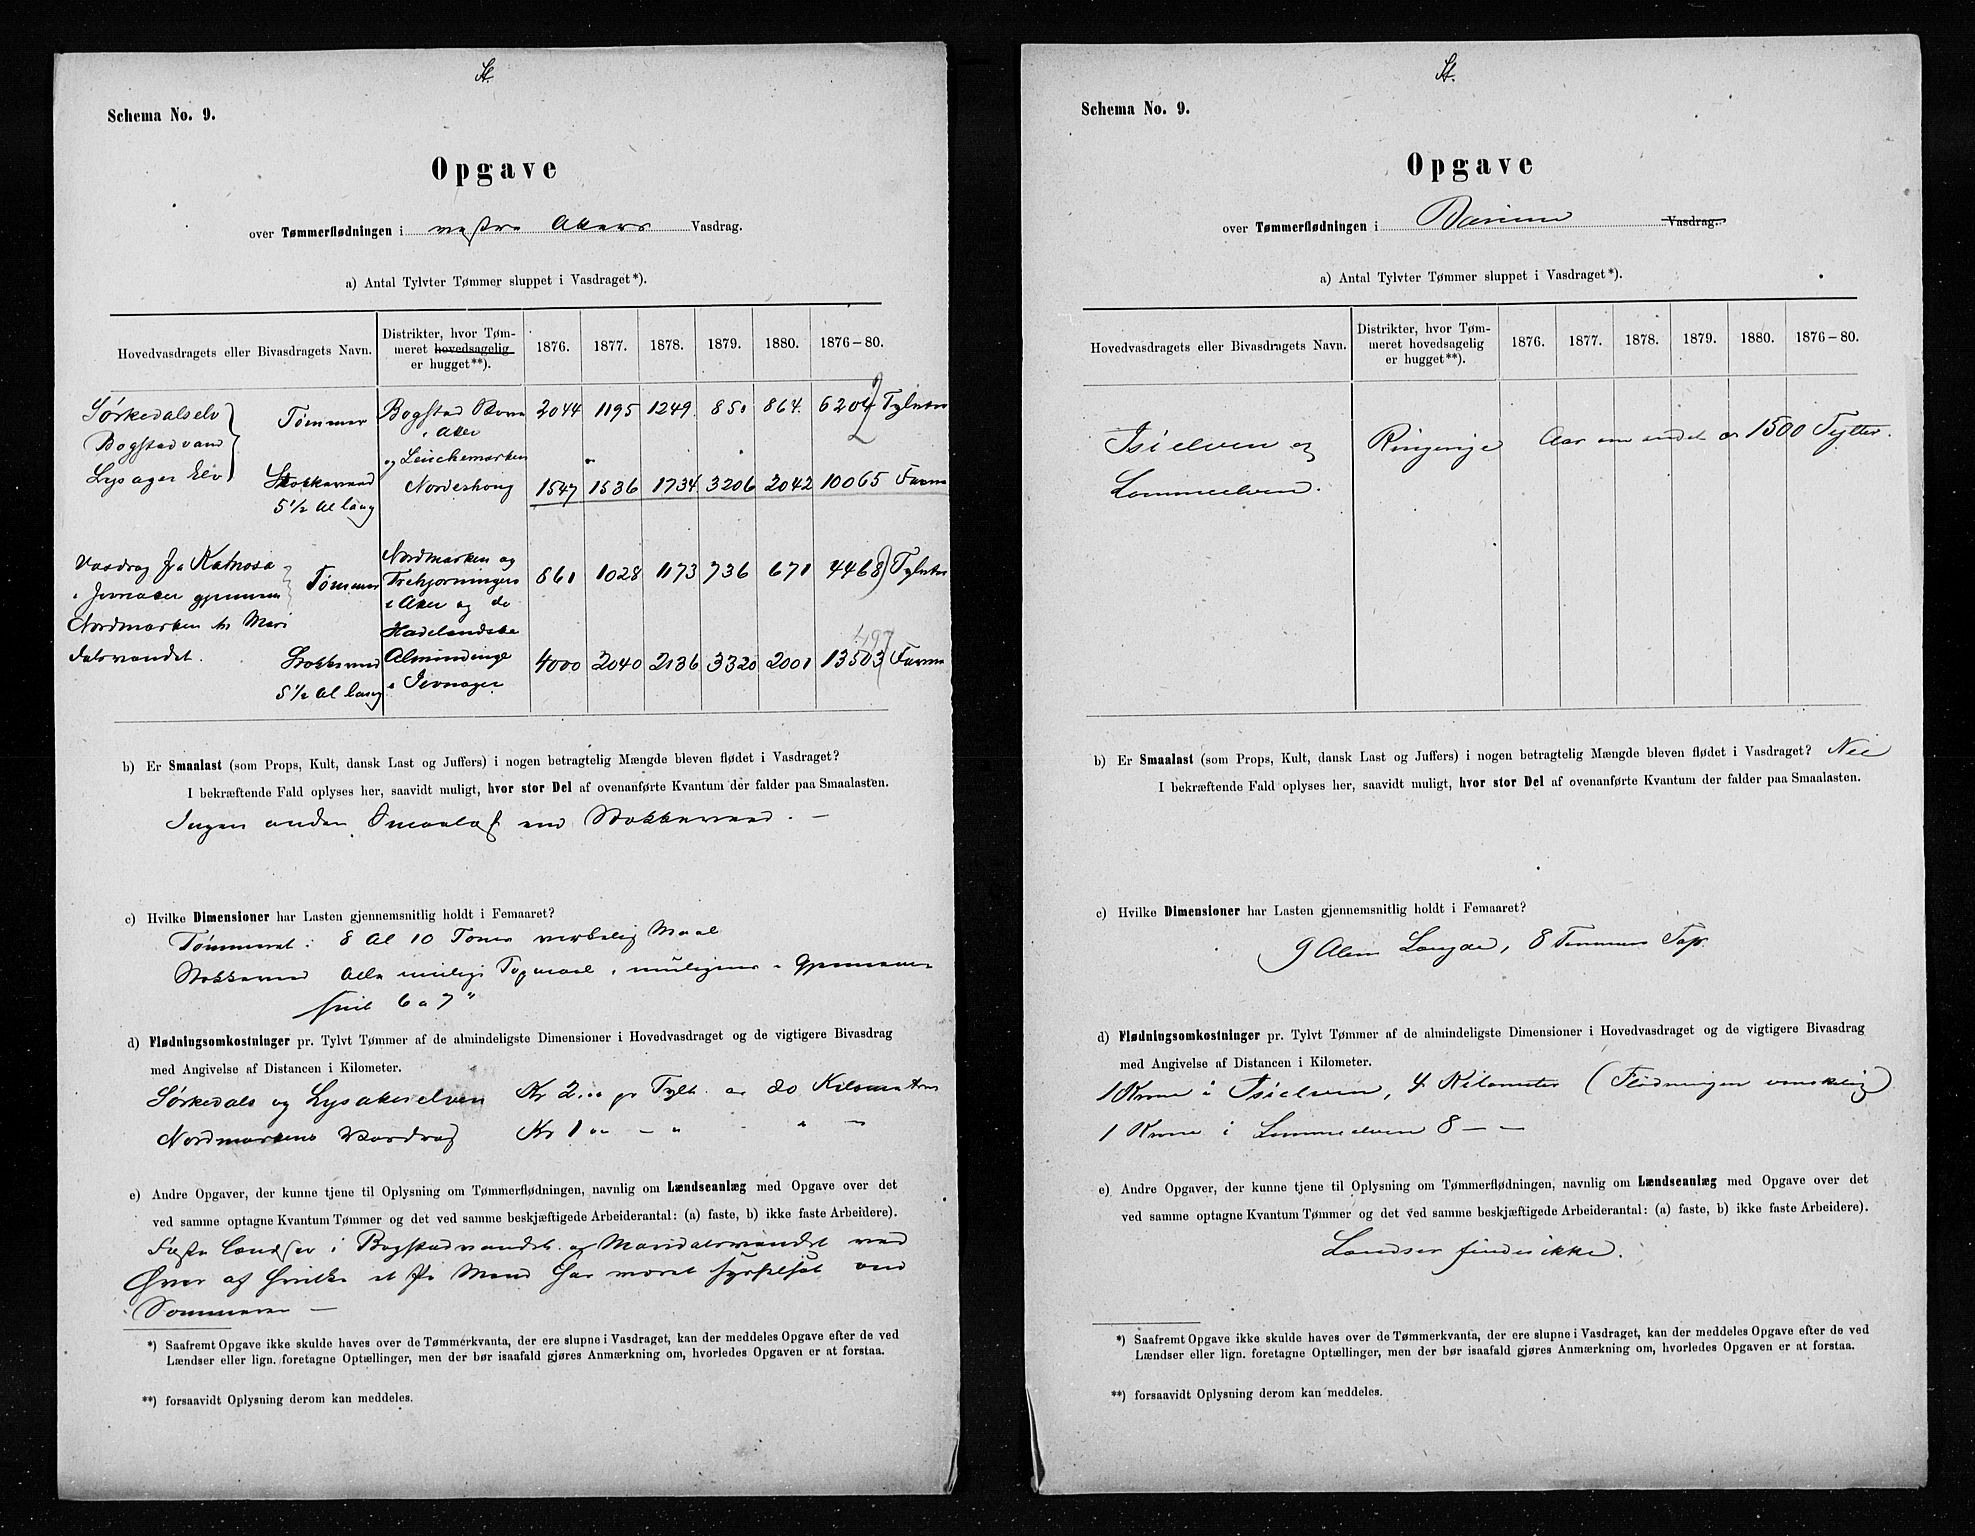 St.
Schema No. 9.
Opgave
over Tømmerflødningen i vestre Akers Vasdrag.
a) Antal Tylvter Tømmer sluppet i Vasdraget*).
Hovedvasdragets eller Bivasdragets Navn. Distrikter, hvor Tømmeret hovedsagelig er hugget**). 1876. 1877. 1878. 1879. 1880. 1876–80.
Sørkedalselv Tømmer Bogstad 2044 1195 1249 851 864 6204 Tylvter
Bogstadvand i Aker
Lysager Elv og
5 1/2 Al lang 1547 1536 1734 3206 2042 10065 Favne
Vasdrag fra Katnosa Tømmer Nordmarken og 861 1028 1173 736 671 4468 Tylvter
i Jevnaker gjennem i Aker og de
Nordmarken til Mari Hadelandske
dalsvandet. Almindinge 4000 2040 2136 3320 2001 13503 Favne
5 1/2 Al lang i Jevnager 497
b) Er Smaalast (som Props, Kult, dansk Last og Juffers) i nogen betragtelig Mængde bleven flødet i Vasdraget?
I bekræftende Fald oplyses her, saavidt muligt, hvor stor Del af ovenanførte Kvantum der falder paa Smaalasten.
Ingen anden Smaalast end Stokkeved. –
c) Hvilke Dimensioner har Lasten gjennemsnitlig holdt i Femaaret?
Tømmeret: 8 Al 10 Tomer virkelig Maal
Stokkeved alle mulige Topmaal i
snit 6 a 7"
d) Flødningsomkostninger pr. Tylvt Tømmer af de almindeligste Dimensioner i Hovedvasdraget og de vigtigere Bivasdrag
med Angivelse af Distancen i Kilometer.
Sørkedals og Lysakerelven Kr 2.00 pr Tylt. ca 20 Kilometer
Nordmarkens Vasdrag Kr 1 00 – " - " –
e) Andre Opgaver, der kunne tjene til Oplysning om Tømmerflødningen, navnlig om Lændseanlæg med Opgave over det
ved samme optagne Kvantum Tømmer og det ved samme beskjæftigede Arbeiderantal: (a) faste, b) ikke faste Arbeidere).
Faste Lændser i Bogstadvandet og Maridalsvandet ved
hver af hvilke et Par Mand har været sysselsat om
Sommeren –
*) Saafremt Opgave ikke skulde haves over de Tømmerkvanta, der ere slupne i Vasdraget, kan der meddeles Opgave efter de ved
Lændser eller lign. foretagne Optællinger, men der bør isaafald gjøres Anmærkning om, hvorledes Opgaven er at forstaa.
**) forsaavidt Oplysning derom kan meddeles.
St.
Schema No. 9.
Opgave
over Tømmerflødningen i Bærum Vasdrag.
a) Antal Tylvter Tømmer sluppet i Vasdraget*).
Hovedvasdragets eller Bivasdragets Navn. Distrikter, hvor Tømmeret hovedsagelig er hugget**). 1876. 1877. 1878. 1879. 1880. 1876–80.
Isielven og Ringerige Aar om andet ca 1500 Tylter.
Lommeelven.
b) Er Smaalast (som Props, Kult, dansk Last og Juffers) i nogen betragtelig Mængde bleven flødet i Vasdraget? Nei
I bekræftende Fald oplyses her, saavidt muligt, hvor stor Del af ovenanførte Kvantum der falder paa Smaalasten.
c) Hvilke Dimensioner har Lasten gjennemsnitlig holdt i Femaaret?
9 Alens Længde, 8 Tommers Top.
d) Flødningsomkostninger pr. Tylvt Tømmer af de almindeligste Dimensioner i Hovedvasdraget og de vigtigere Bivasdrag
med Angivelse af Distancen i Kilometer.
1 Krone i Isielven, 4 Kilometer (Flødningen vanskelig)
1 Krone i Lommeelven 8 – –
e) Andre Opgaver, der kunne tjene til Oplysning om Tømmerflødningen, navnlig om Lændseanlæg med Opgave over det
ved samme optagne Kvantum Tømmer og det ved samme beskjæftigede Arbeiderantal: (a) faste, b) ikke faste Arbeidere).
Lændser findes ikke.
*) Saafremt Opgave ikke skulde haves over de Tømmerkvanta, der ere slupne i Vasdraget, kan der meddeles Opgave efter de ved
Lændser eller lign. foretagne Optællinger, men der bør isaafald gjøres Anmærkning om, hvorledes Opgaven er at forstaa.
**) forsaavidt Oplysning derom kan meddeles.